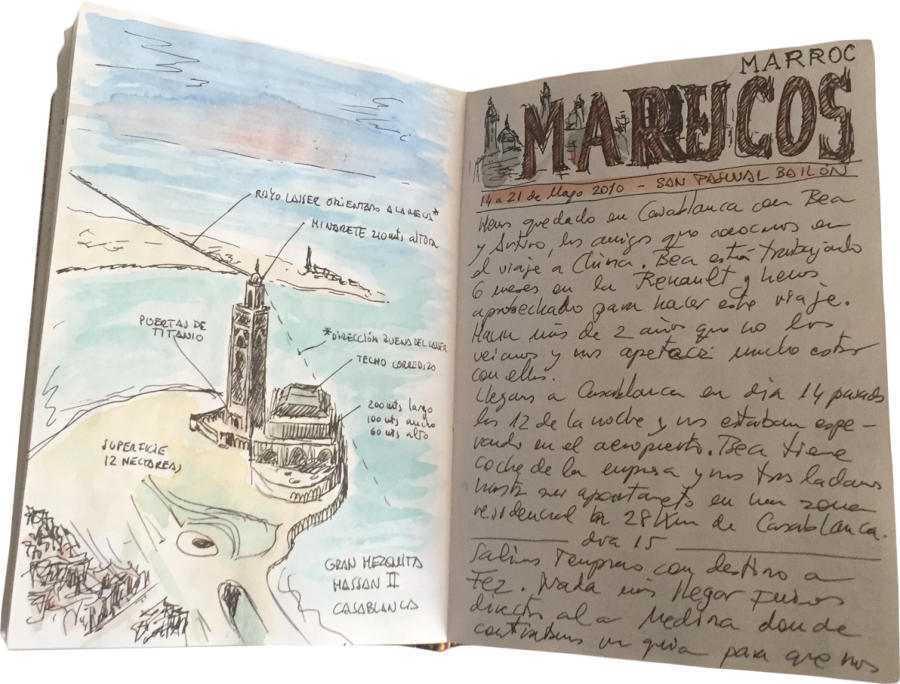 RAYO LASSER ORIENTADO A LA MECA*
MINARETE 210 mts altura
PUERTAS DE
TITANIO
*DIRECCIÓN BUENA DEL LASSER
TECHO CORREDIZO
200 mts largo
100 mts ancho
60 mts alto
SUPERFICIE
12 HECTAREAS
GRAN MEZQUITA
HASSAN II
CASABLANCA
MARROC
MARRUECOS
14 a 21 de Mayo 2010 - SAN PASCUAL BAILON
Hemos quedado en Casablanca con Bea
y Arturo, los amigos que conocimos en
el viaje a China. Bea está trabajando
6 meses en la Renault y hemos
aprovechado para hacer este viaje.
Hacia más de 2 años que no los
veiamos y nos apetecía mucho estar
con ellos.
Llegamos a Casablanca en dia 14 pasadas
las 12 de la noche y nos estaban espe-
rando en el aeropuerto. Bea tiene
coche de la empresa y nos trasladamos
hasta su apartamento en una zona
residencial a 28 Km de Casablanca.
dia 15
Salimos Temprano con destino a
Fez. Nada más llegar fuimos
directos a la Medina donde
contratamos un guia para que nos